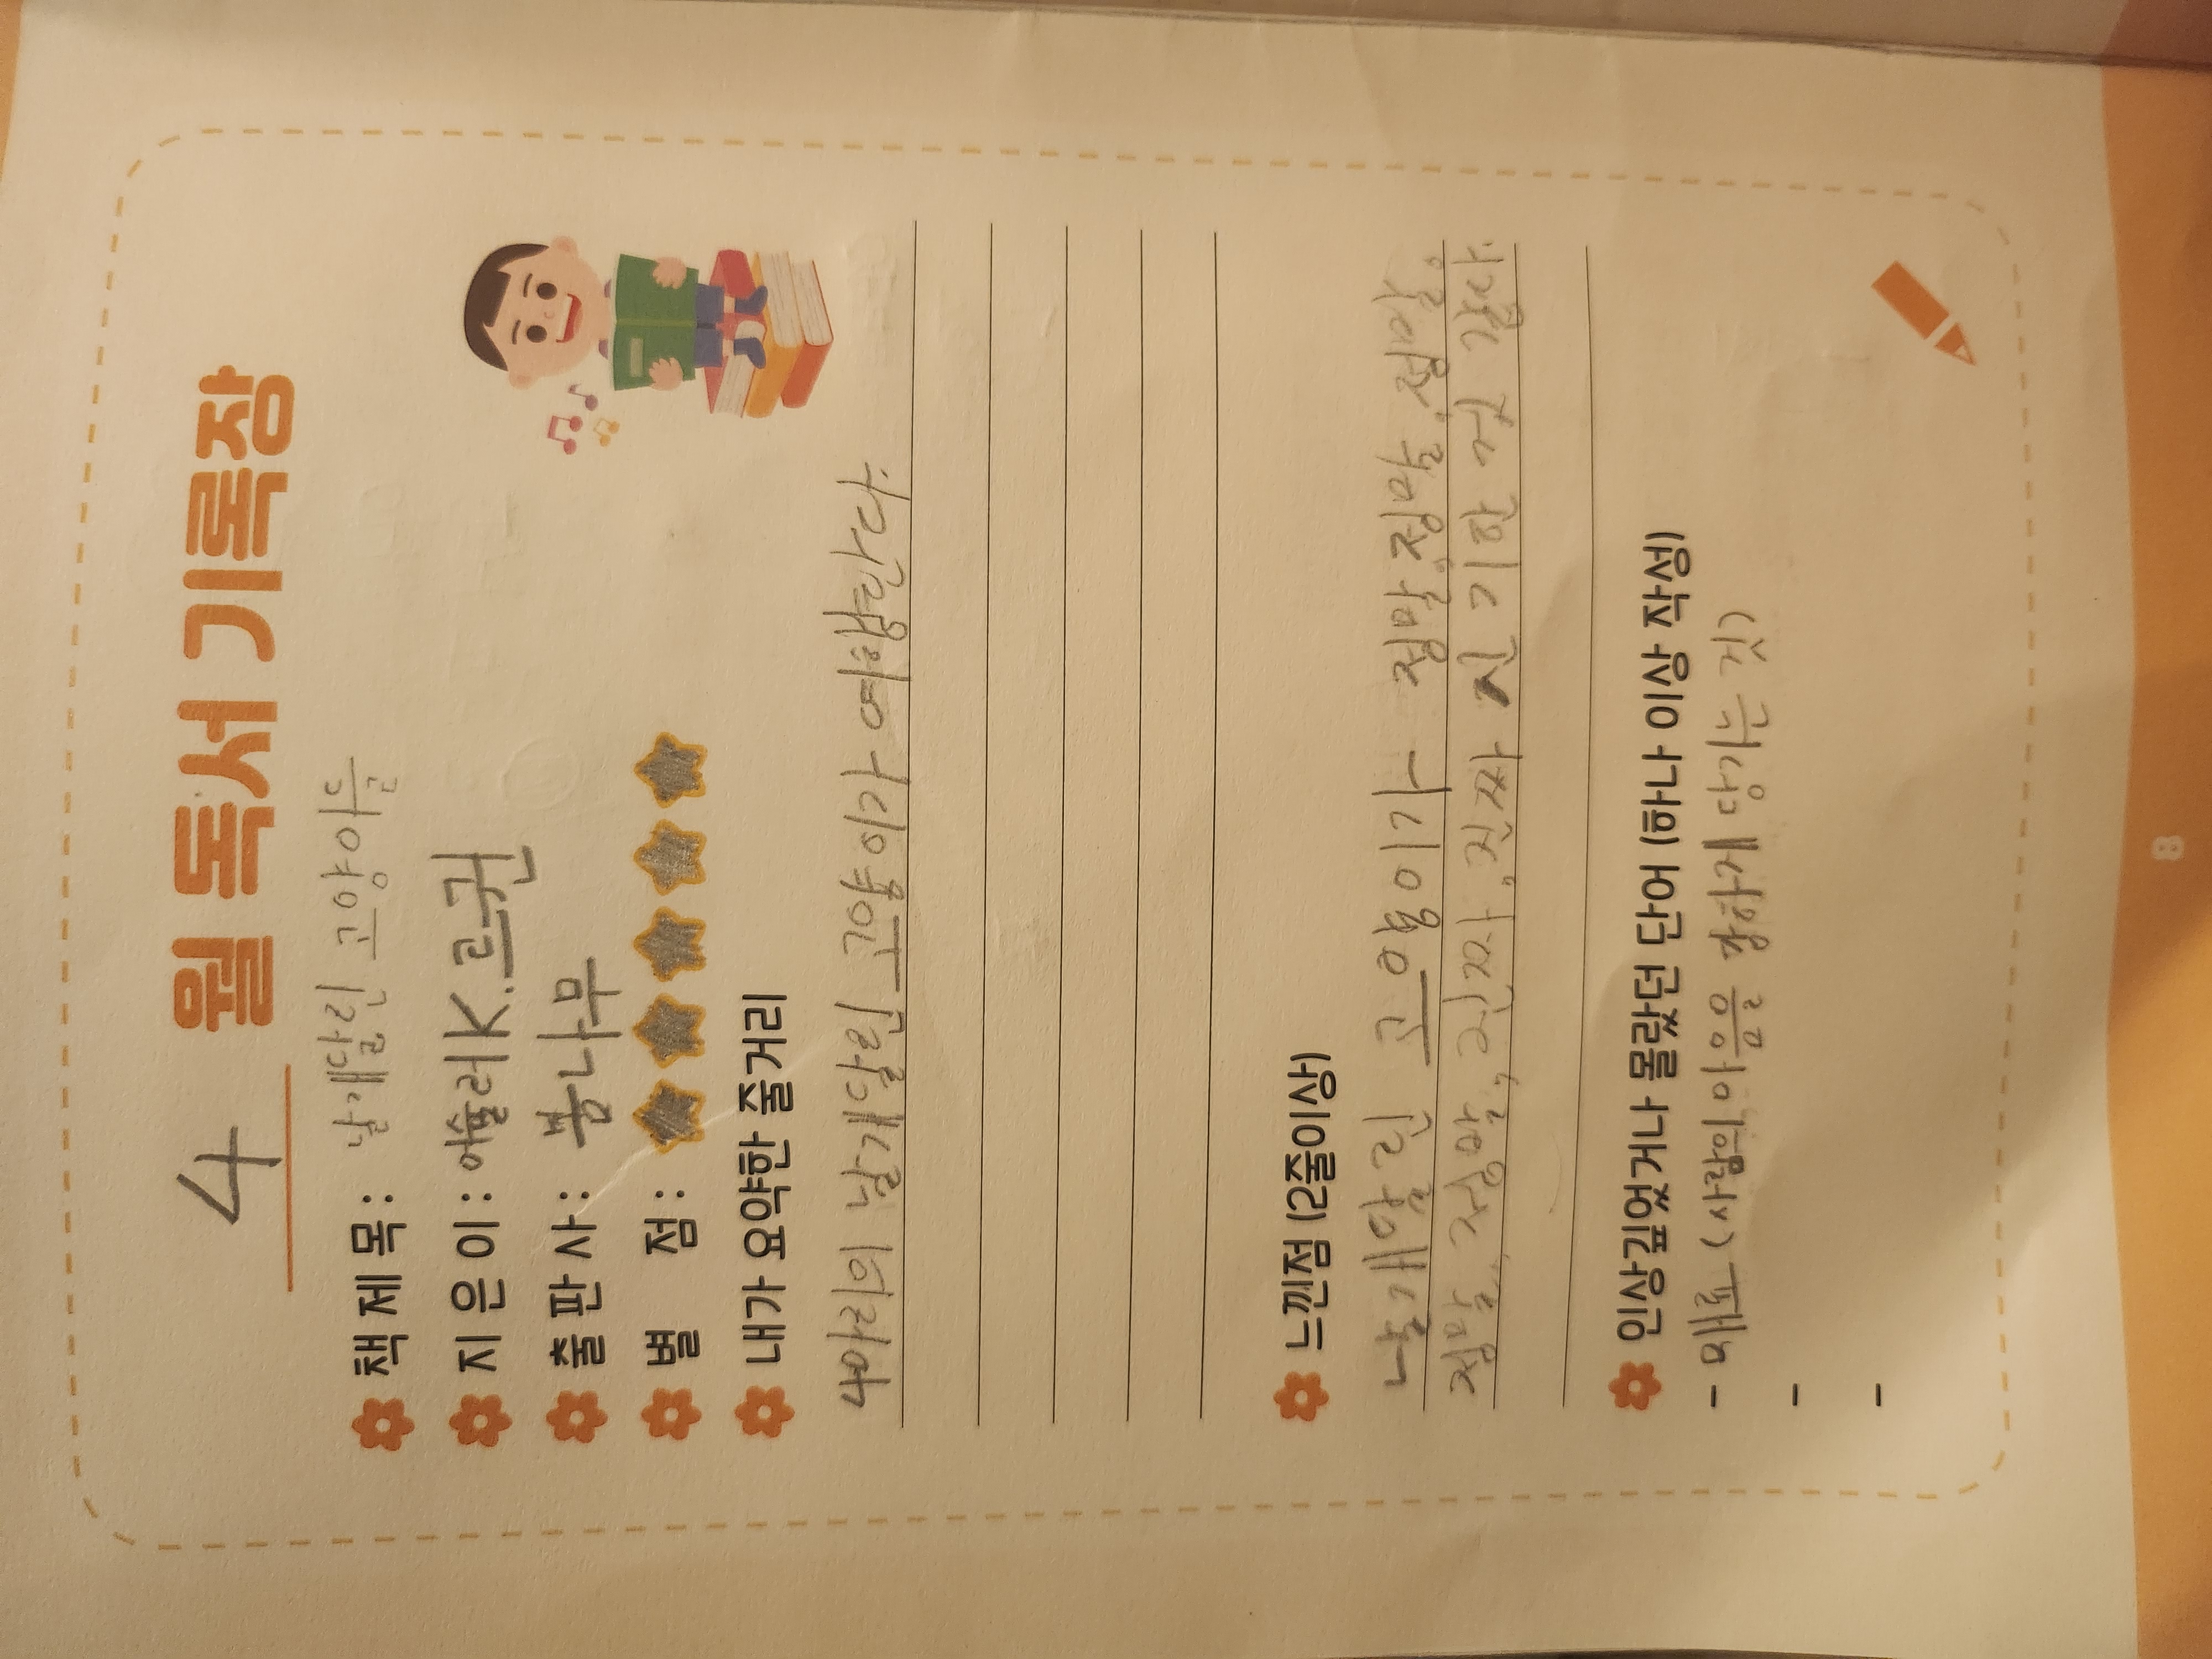 4 월 독서 기록장
책 제 목 : 날개달린 고양이들
지 은 이 : 어슐러 K. 르귄
출 판 사 : 봄나무
별 점 :
내가 요약한 줄거리
4마리의 날개달린 고양이가 여행한다.
느낀점 (2줄이상)
날개달린 고양이가 정말, 정말, 정말,
정말, 정말, 진짜, 진짜 신기한 것 같다.
인상깊었거나 몰랐던 단어 (하나 이상 작성)
- 매료 (사람의 마음을 강하게 당기는 것)
-
-
8